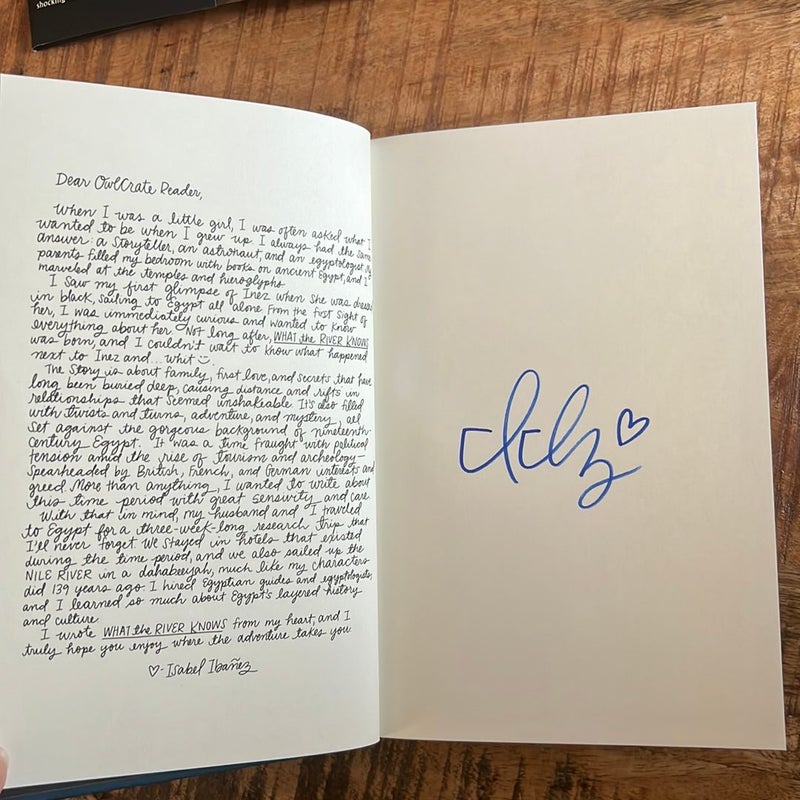 shocking
Dear OwlCrate Reader,
When I was a little girl, I was often asked what I
wanted to be when I grew up. I always had the same
answer: a storyteller, an astronaut, and an egyptologist. My
parents filled my bedroom with books on ancient Egypt, and I
marveled at the temples and hieroglyphs.
I saw my first glimpse of Inez when she was dressed
in black, sailing to Egypt all alone. From the first sight of
her, I was immediately curious and wanted to know
everything about her. Not long after, WHAT the RIVER KNOWS
was born, and I couldn't wait to know what happened
next to Inez and... whit
The story is about family, first love, and secrets that have
long been buried deep, causing distance and rifts in
relationships that seemed unshakeable. It's also filled
with twists and turns, adventure, and mystery, all
set against the gorgeous background of nineteenth-
century Egypt. It was a time fraught with political
tension amid the rise of tourism and archeology—
spearheaded by British, French, and German interests and
greed. More than anything, I wanted to write about
this time period with great sensitivity and care.
With that in mind, my husband and I traveled
to Egypt for a three-week-long research trip that
I'll never forget. We stayed in hotels that existed
during the time period, and we also sailed up the
NILE RIVER in a dahabeeyah, much like my characters
did 139 years ago. I hired Egyptian guides and egyptologists,
and I learned so much about Egypt's layered history
and culture.
I wrote WHAT the RIVER KNOWS from my heart, and I
truly hope you enjoy where the adventure takes you
♡-Isabel Ibañez